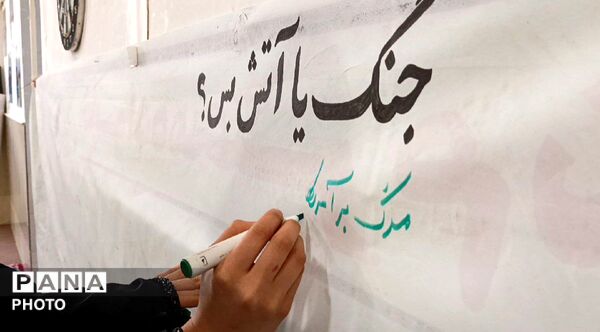 جنگ یا آتش بس؟
مرگ بر آمریکا
PANA
PHOTO